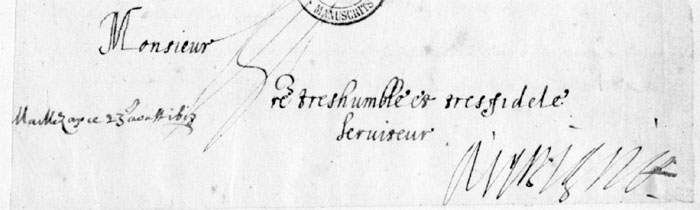 MANUSCRITS
Monsieur
re treshumble et tresfidele
Serviteur
Maillezaye ce 23 aoust